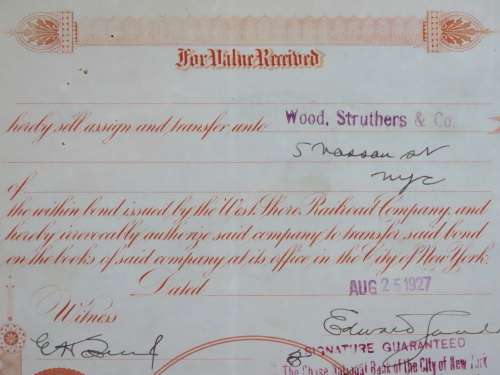 For Value Received
hereby sell assign and transfer unto Wood, Struthers & Co.
5 Nassau St
NYC
of
the within bond issued by the West Shore Railroad Company, and
hereby irrevocably authorize said company to transfer said bond
on the books of said company, at its office in the City of New York.
Dated AUG 25 1927
Witness
Edward
SIGNATURE GUARANTEED
The Chase National Bank of the City of New York